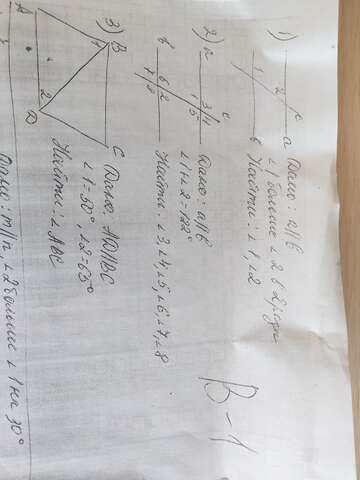 В-1
1) a
c
b
2
1
Дано: a||b
∠1 больше ∠2 в 2 раза
Найти: ∠1, ∠2
2) a
c
b
3 4
1 5
6 2
7 8
Дано: a||b
∠1+∠2=122°
Найти: ∠3,∠4,∠5,∠6,∠7,∠8
3) B
C
A
D
1
2
Дано: AD||BC
∠1=30°, ∠2=65°
Найти: ∠ABC
Дано: m||n, ∠2 больше ∠1 на 30°